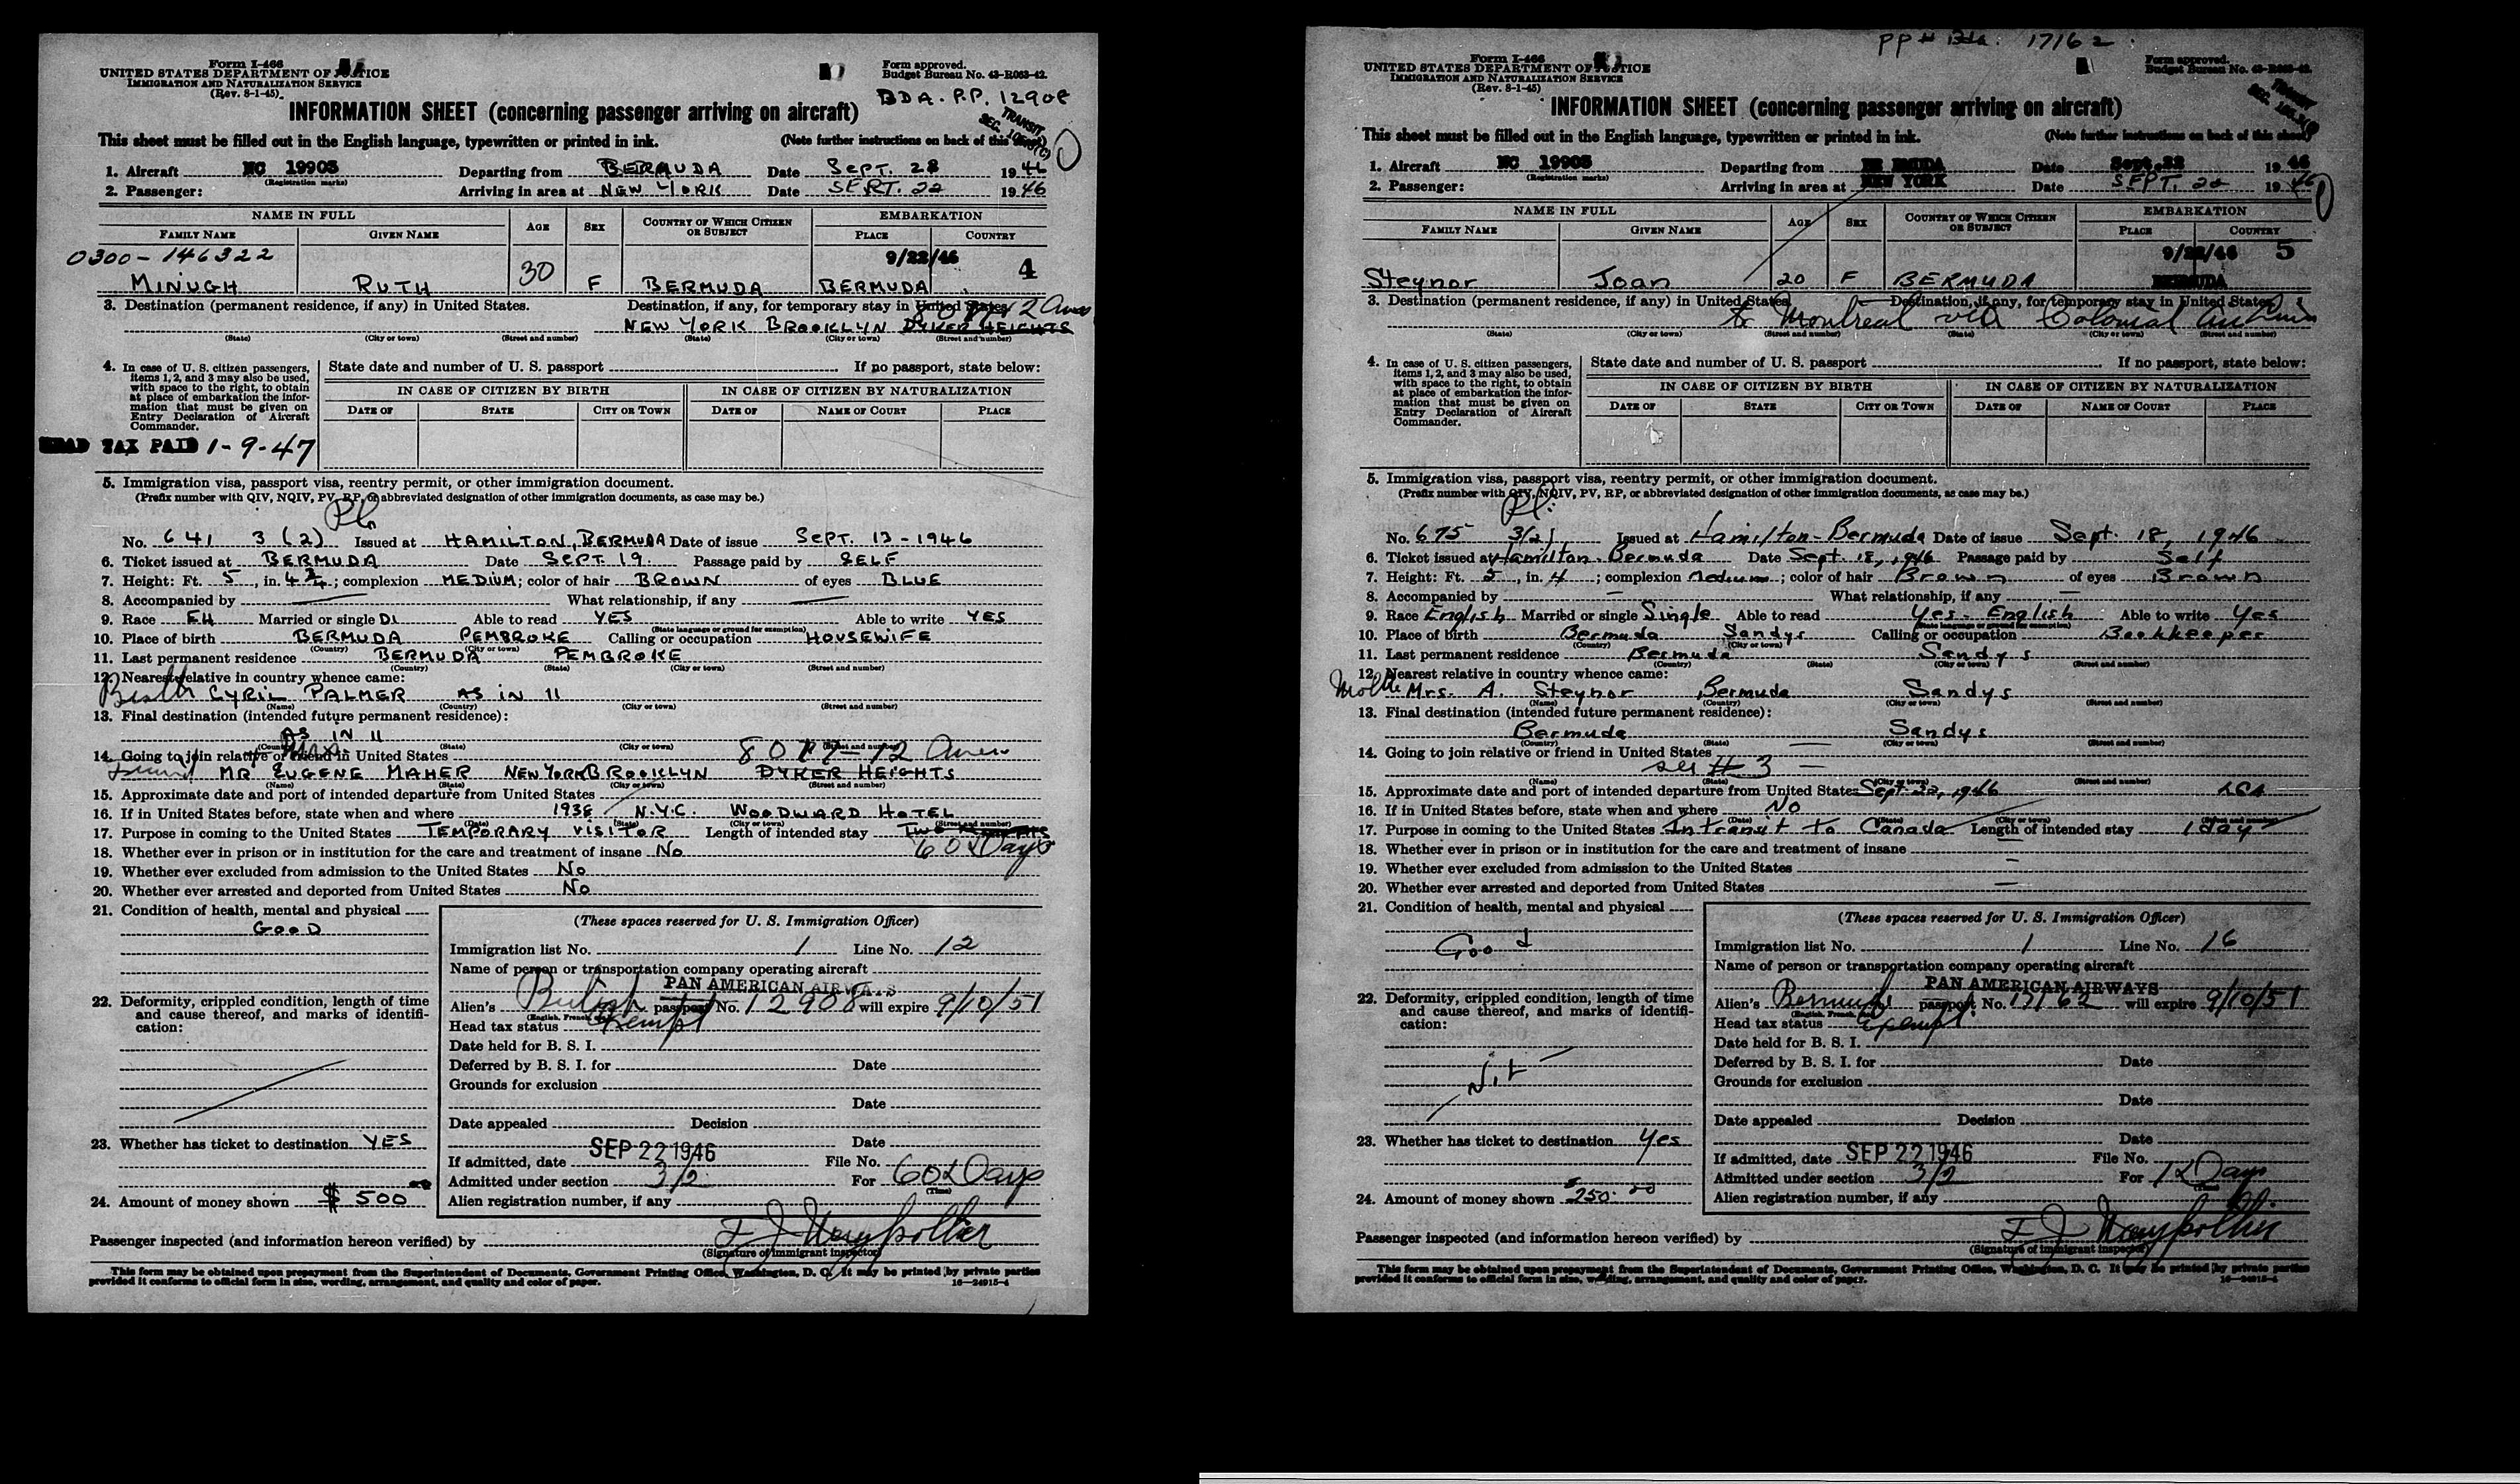 Form I-466
UNITED STATES DEPARTMENT OF JUSTICE
IMMIGRATION AND NATURALIZATION SERVICE
(Rev. 8-1-45)
Form approved.
Budget Bureau No. 43-R063-42.
BDA. P.P. 12908
TRANSIT
INFORMATION SHEET (concerning passenger arriving on aircraft)
This sheet must be filled out in the English language, typewritten or printed in ink. (Note further instructions on back of this sheet)
1. Aircraft NC 19903 Departing from BERMUDA Date SEPT. 22 1946
(Registration marks)
2. Passenger: Arriving in area at NEW YORK Date SEPT. 22 1946
NAME IN FULL AGE SEX COUNTRY OF WHICH CITIZEN OR SUBJECT EMBARKATION
FAMILY NAME GIVEN NAME PLACE COUNTRY
0300-146322 9/22/46 4
MINUGH RUTH 30 F BERMUDA BERMUDA
3. Destination (permanent residence, if any) in United States. Destination, if any, for temporary stay in United States
NEW YORK BROOKLYN DYKER HEIGHTS
(State) (City or town) (Street and number) (State) (City or town) (Street and number)
4. In case of U. S. citizen passengers, items 1, 2, and 3 may also be used, with space to the right, to obtain at place of embarkation the information that must be given on Entry Declaration of Aircraft Commander.
State date and number of U. S. passport If no passport, state below:
IN CASE OF CITIZEN BY BIRTH IN CASE OF CITIZEN BY NATURALIZATION
DATE OF STATE CITY OR TOWN DATE OF NAME OF COURT PLACE
HEAD TAX PAID 1-9-47
5. Immigration visa, passport visa, reentry permit, or other immigration document.
(Prefix number with QIV, NQIV, PV, RP, or abbreviated designation of other immigration documents, as case may be.)
No. 641 3(2) Issued at HAMILTON, BERMUDA Date of issue SEPT. 13-1946
6. Ticket issued at BERMUDA Date SEPT. 19. Passage paid by SELF
7. Height: Ft. 5, in. 4 3/4; complexion MEDIUM; color of hair BROWN of eyes BLUE
8. Accompanied by What relationship, if any
9. Race EH Married or single DI Able to read YES Able to write YES
(State language or ground for exemption)
10. Place of birth BERMUDA PEMBROKE Calling or occupation HOUSEWIFE
(Country) (City or town)
11. Last permanent residence BERMUDA PEMBROKE
(Country) (State) (City or town) (Street and number)
12. Nearest relative in country whence came:
CYRIL PALMER AS IN 11
(Name) (Country) (City or town) (Street and number)
13. Final destination (intended future permanent residence):
AS IN 11
(Country) (State) (City or town) (Street and number)
14. Going to join relative or friend in United States
MR EUGENE MAHER NEW YORK BROOKLYN DYKER HEIGHTS
(Name) (State) (City or town) (Street and number)
15. Approximate date and port of intended departure from United States
16. If in United States before, state when and where 1938 N.Y.C. WOODWARD HOTEL
(Date) (State) (City or town) (Street and number)
17. Purpose in coming to the United States TEMPORARY VISITOR Length of intended stay
60 Days
18. Whether ever in prison or in institution for the care and treatment of insane No
19. Whether ever excluded from admission to the United States No
20. Whether ever arrested and deported from United States No
21. Condition of health, mental and physical
GOOD
22. Deformity, crippled condition, length of time and cause thereof, and marks of identification:
23. Whether has ticket to destination YES
24. Amount of money shown $ 500
(These spaces reserved for U. S. Immigration Officer)
Immigration list No. 1 Line No. 12
Name of person or transportation company operating aircraft
PAN AMERICAN AIRWAYS
Alien's British passport No. 12908 will expire 9/10/51
Head tax status Exempt
Date held for B. S. I.
Deferred by B. S. I. for Date
Grounds for exclusion
Date
Date appealed Decision
Date
If admitted, date SEP 22 1946 File No.
Admitted under section 3/2 For 60 Days
(Time)
Alien registration number, if any
Passenger inspected (and information hereon verified) by
(Signature of immigrant inspector)
This form may be obtained upon prepayment from the Superintendent of Documents, Government Printing Office, Washington, D. C. It may be printed by private parties
provided it conforms to official form in size, wording, arrangement, and quality and color of paper. 16—24915-4
PP # Bda. 17162
Form I-466
UNITED STATES DEPARTMENT OF JUSTICE
IMMIGRATION AND NATURALIZATION SERVICE
(Rev. 8-1-45)
Form approved.
Budget Bureau No. 43-R063-42.
TRANSIT
INFORMATION SHEET (concerning passenger arriving on aircraft)
This sheet must be filled out in the English language, typewritten or printed in ink. (Note further instructions on back of this sheet)
1. Aircraft NC 19903 Departing from BERMUDA Date Sept. 22 1946
(Registration marks)
2. Passenger: Arriving in area at NEW YORK Date SEPT. 22 1946
NAME IN FULL AGE SEX COUNTRY OF WHICH CITIZEN OR SUBJECT EMBARKATION
FAMILY NAME GIVEN NAME PLACE COUNTRY
9/22/46 5
Steynor Joan 20 F BERMUDA BERMUDA
3. Destination (permanent residence, if any) in United States. Destination, if any, for temporary stay in United States
to Montreal via Colonial
(State) (City or town) (Street and number) (State) (City or town) (Street and number)
4. In case of U. S. citizen passengers, items 1, 2, and 3 may also be used, with space to the right, to obtain at place of embarkation the information that must be given on Entry Declaration of Aircraft Commander.
State date and number of U. S. passport If no passport, state below:
IN CASE OF CITIZEN BY BIRTH IN CASE OF CITIZEN BY NATURALIZATION
DATE OF STATE CITY OR TOWN DATE OF NAME OF COURT PLACE
5. Immigration visa, passport visa, reentry permit, or other immigration document.
(Prefix number with QIV, NQIV, PV, RP, or abbreviated designation of other immigration documents, as case may be.)
No. 675 3(2) Issued at Hamilton-Bermuda Date of issue Sept. 18, 1946
6. Ticket issued at Hamilton-Bermuda Date Sept. 18, 1946 Passage paid by Self
7. Height: Ft. 5, in. 4; complexion Medium; color of hair Brown of eyes Brown
8. Accompanied by — What relationship, if any —
9. Race English Married or single Single Able to read Yes - English Able to write Yes
(State language or ground for exemption)
10. Place of birth Bermuda Sandys Calling or occupation Bookkeeper
(Country) (City or town)
11. Last permanent residence Bermuda Sandys
(Country) (State) (City or town) (Street and number)
12. Nearest relative in country whence came:
Mrs. A. Steynor Bermuda Sandys
(Name) (Country) (City or town) (Street and number)
13. Final destination (intended future permanent residence):
Bermuda Sandys
(Country) (State) (City or town) (Street and number)
14. Going to join relative or friend in United States —
see # 3 —
(Name) (State) (City or town) (Street and number)
15. Approximate date and port of intended departure from United States Sept. 22, 1946 LGA
16. If in United States before, state when and where No
(Date) (State) (City or town) (Street and number)
17. Purpose in coming to the United States Intransit to Canada Length of intended stay 1 day
18. Whether ever in prison or in institution for the care and treatment of insane —
19. Whether ever excluded from admission to the United States —
20. Whether ever arrested and deported from United States —
21. Condition of health, mental and physical
Good
22. Deformity, crippled condition, length of time and cause thereof, and marks of identification:
Nil
23. Whether has ticket to destination Yes
24. Amount of money shown $250.00
(These spaces reserved for U. S. Immigration Officer)
Immigration list No. 1 Line No. 16
Name of person or transportation company operating aircraft
PAN AMERICAN AIRWAYS
Alien's Bermuda passport No. 17162 will expire 9/10/51
Head tax status Exempt
Date held for B. S. I.
Deferred by B. S. I. for Date
Grounds for exclusion
Date
Date appealed Decision
Date
If admitted, date SEP 22 1946 File No.
Admitted under section 3/2 For Days
(Time)
Alien registration number, if any
Passenger inspected (and information hereon verified) by
(Signature of immigrant inspector)
This form may be obtained upon prepayment from the Superintendent of Documents, Government Printing Office, Washington, D. C. It may be printed by private parties
provided it conforms to official form in size, wording, arrangement, and quality and color of paper. 16—24915-4